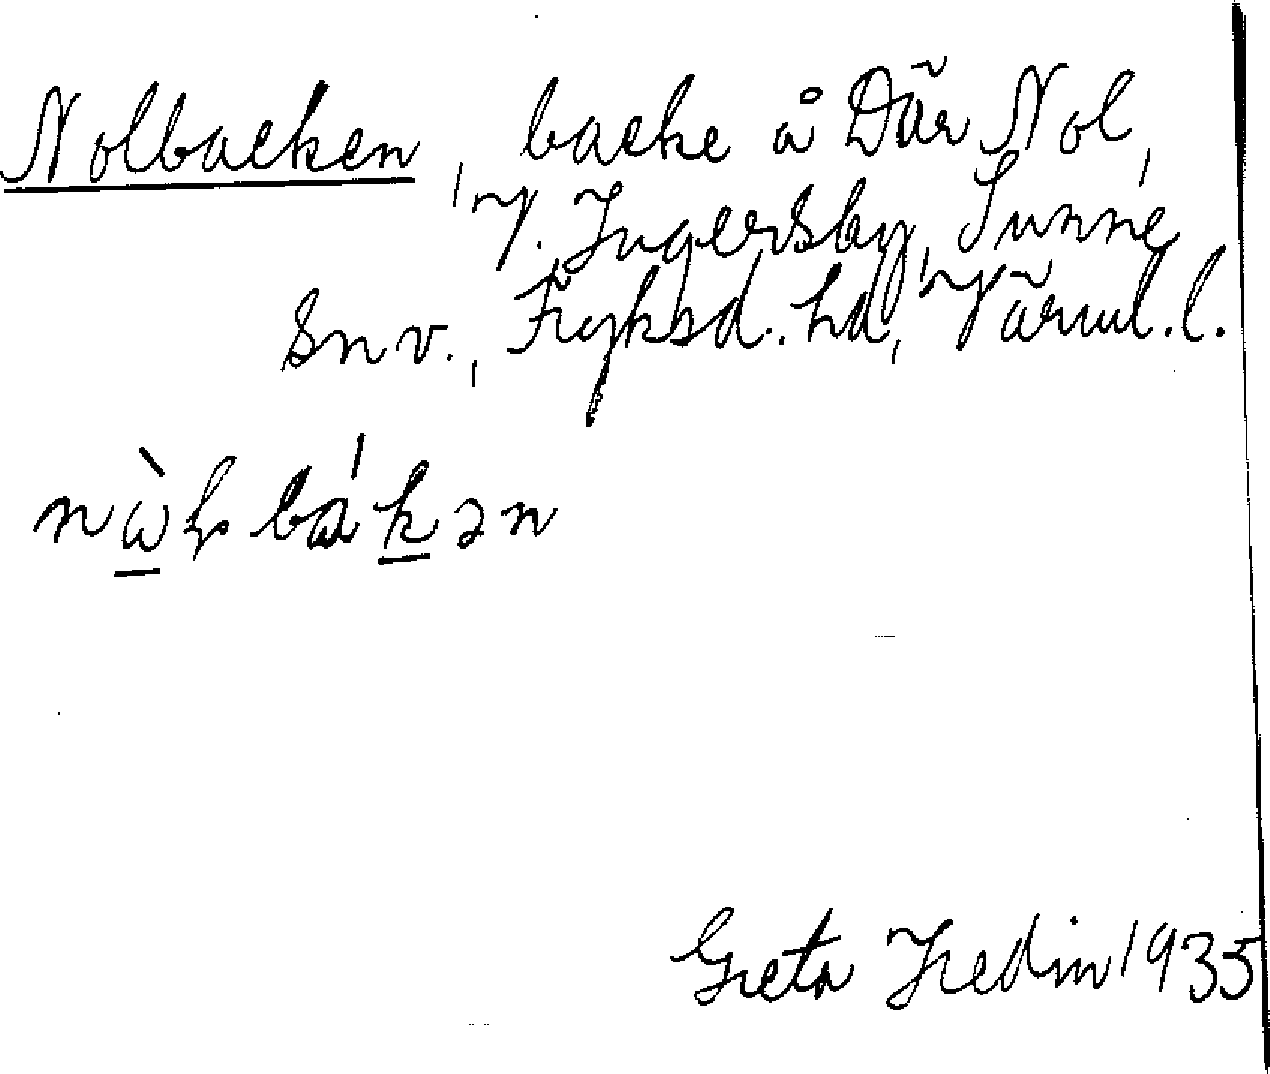 Nolbacken, backe å Där Nol,
V. Ingersby, Sunne
sn v., Fryksd. hd, Värml. l.
Greta Hedin 1935